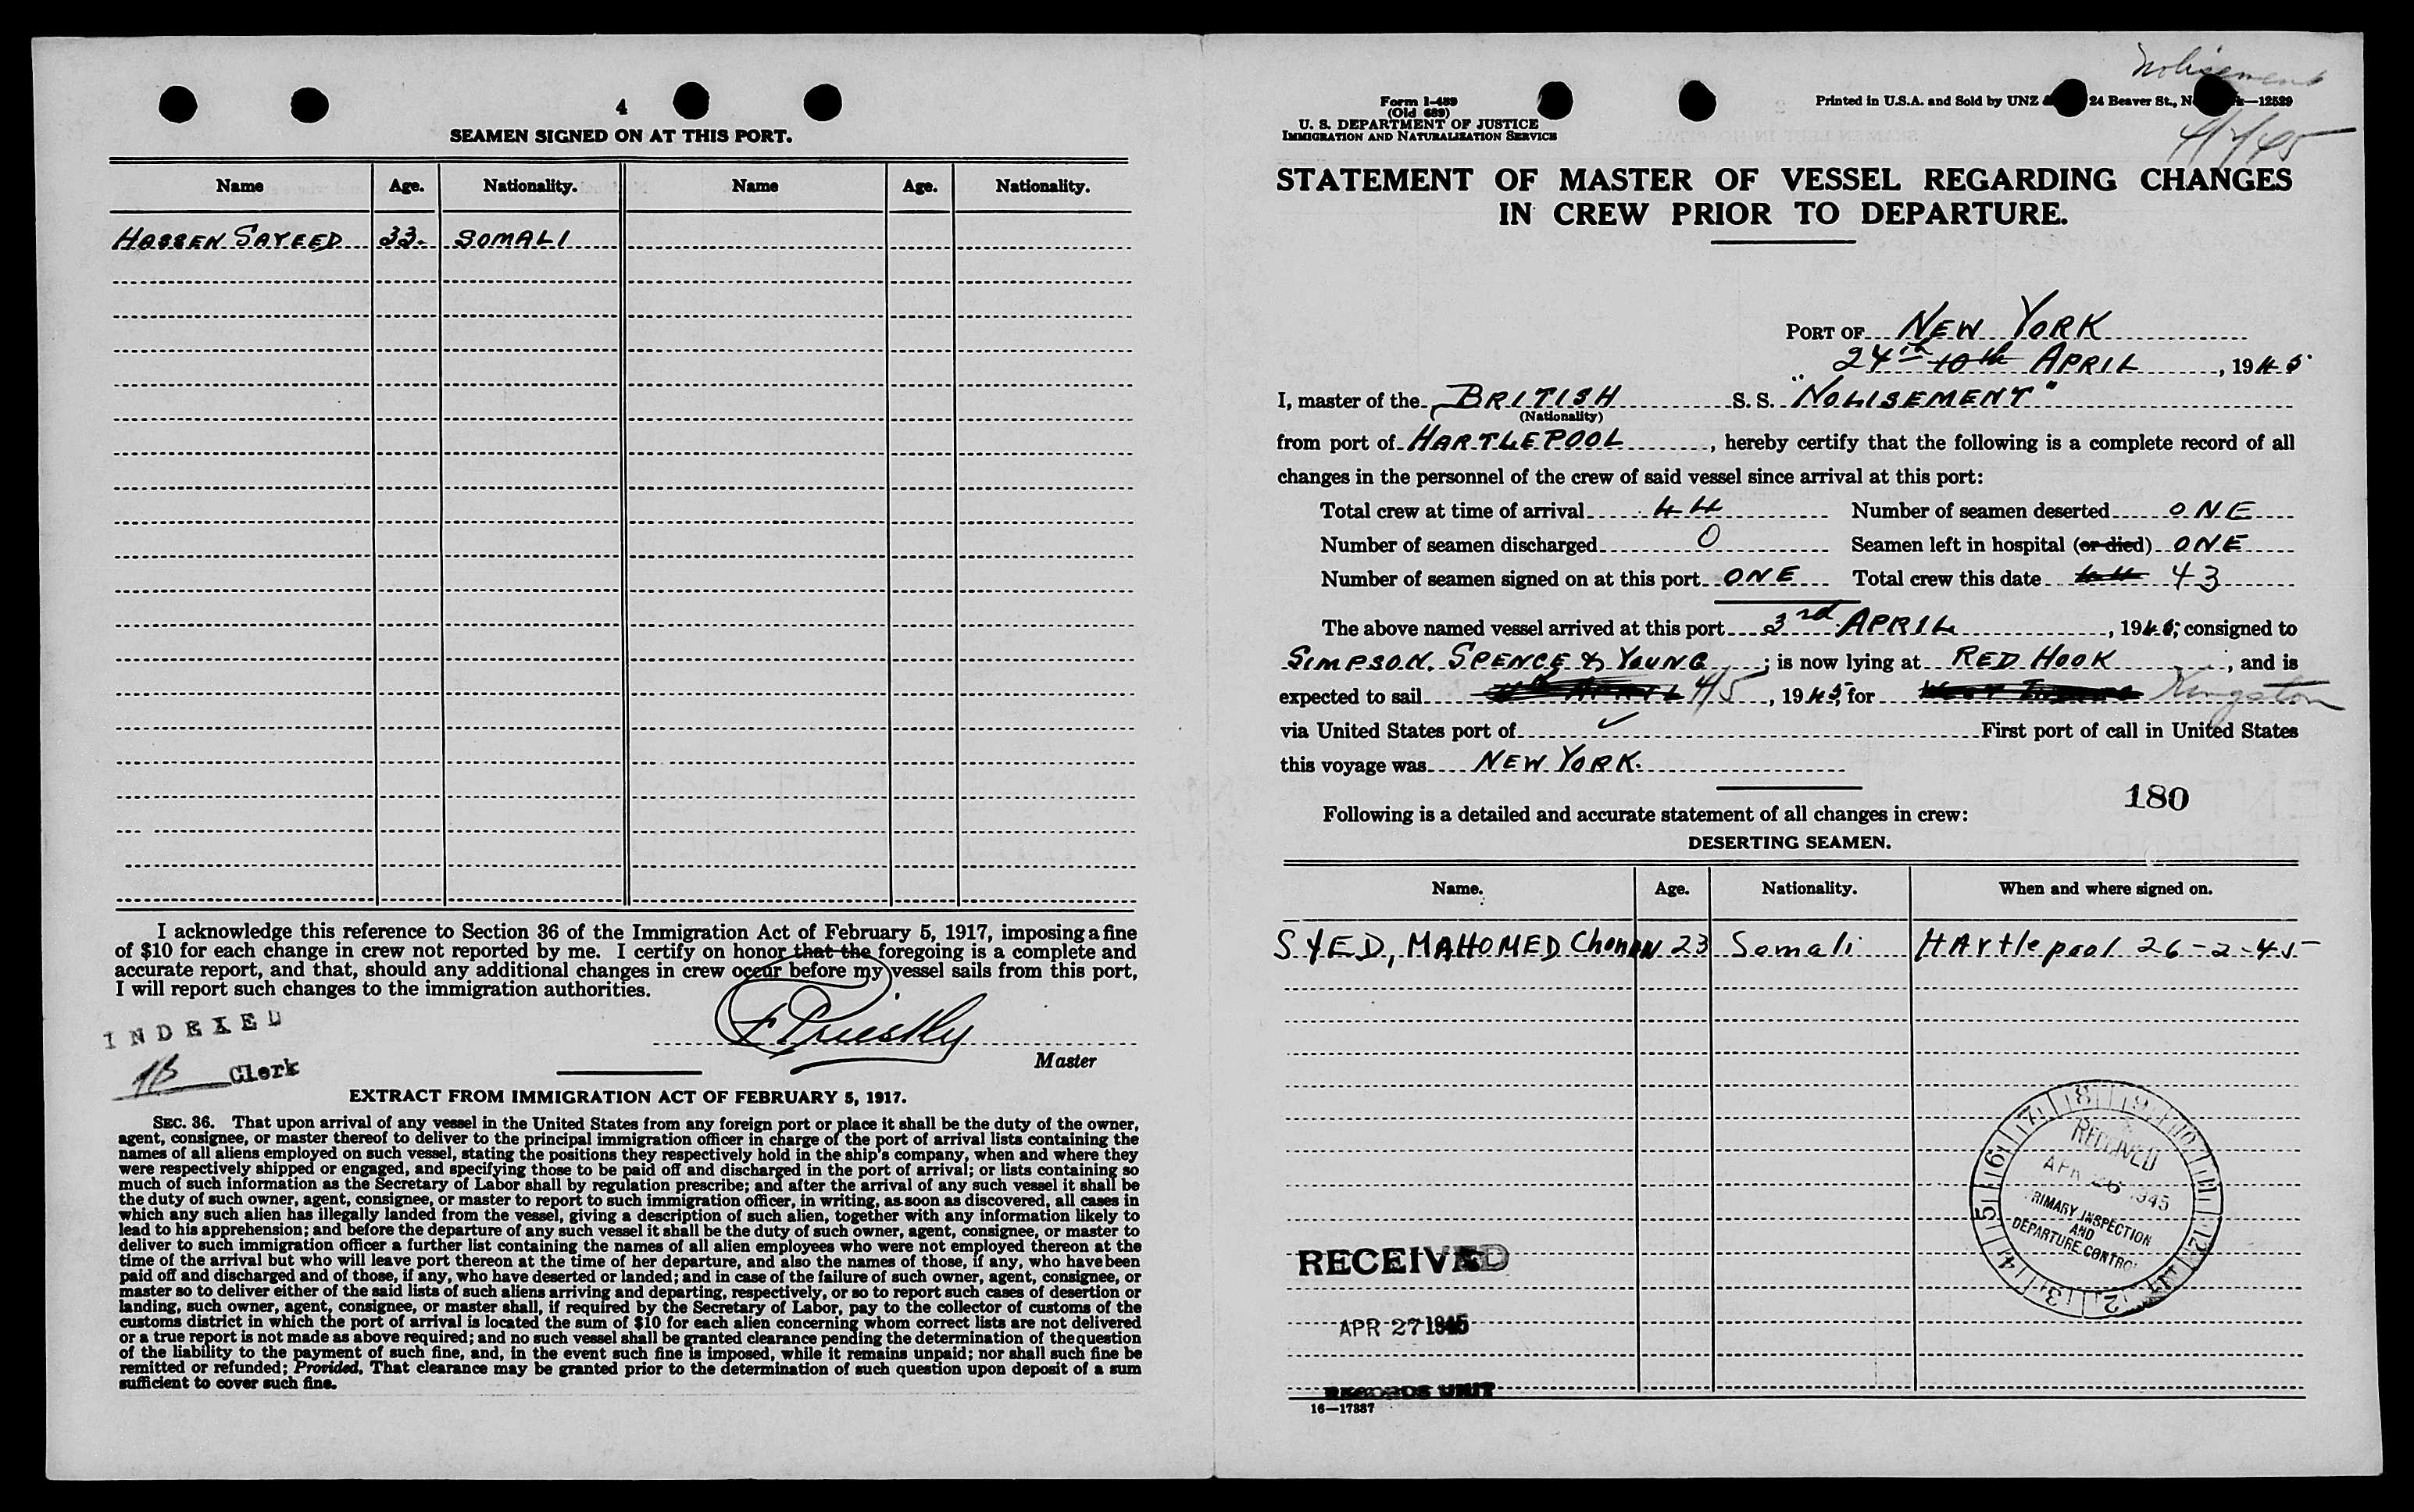 4
SEAMEN SIGNED ON AT THIS PORT.
Name Age. Nationality. Name Age. Nationality.
HASSEN SAYEED 33. SOMALI
I acknowledge this reference to Section 36 of the Immigration Act of February 5, 1917, imposing a fine
of $10 for each change in crew not reported by me. I certify on honor that the foregoing is a complete and
accurate report, and that, should any additional changes in crew occur before my vessel sails from this port,
I will report such changes to the immigration authorities.
INDEXED
Clerk
F Priestley
Master
EXTRACT FROM IMMIGRATION ACT OF FEBRUARY 5, 1917.
SEC. 36. That upon arrival of any vessel in the United States from any foreign port or place it shall be the duty of the owner,
agent, consignee, or master thereof to deliver to the principal immigration officer in charge of the port of arrival lists containing the
names of all aliens employed on such vessel, stating the positions they respectively hold in the ship's company, when and where they
were respectively shipped or engaged, and specifying those to be paid off and discharged in the port of arrival; or lists containing so
much of such information as the Secretary of Labor shall by regulation prescribe; and after the arrival of any such vessel it shall be
the duty of such owner, agent, consignee, or master to report to such immigration officer, in writing, as soon as discovered, all cases in
which any such alien has illegally landed from the vessel, giving a description of such alien, together with any information likely to
lead to his apprehension; and before the departure of any such vessel it shall be the duty of such owner, agent, consignee, or master to
deliver to such immigration officer a further list containing the names of all alien employees who were not employed thereon at the
time of the arrival but who will leave port thereon at the time of her departure, and also the names of those, if any, who have been
paid off and discharged and of those, if any, who have deserted or landed; and in case of the failure of such owner, agent, consignee, or
master so to deliver either of the said lists of such aliens arriving and departing, respectively, or so to report such cases of desertion or
landing, such owner, agent, consignee, or master shall, if required by the Secretary of Labor, pay to the collector of customs of the
customs district in which the port of arrival is located the sum of $10 for each alien concerning whom correct lists are not delivered
or a true report is not made as above required; and no such vessel shall be granted clearance pending the determination of the question
of the liability to the payment of such fine, and, in the event such fine is imposed, while it remains unpaid; nor shall such fine be
remitted or refunded; Provided, That clearance may be granted prior to the determination of such question upon deposit of a sum
sufficient to cover such fine.
Nolisement
Form I-489
(Old 689)
U. S. DEPARTMENT OF JUSTICE
IMMIGRATION AND NATURALIZATION SERVICE
Printed in U.S.A. and Sold by UNZ 24 Beaver St., N —12529
STATEMENT OF MASTER OF VESSEL REGARDING CHANGES
IN CREW PRIOR TO DEPARTURE.
PORT OF NEW YORK
24th 10th APRIL, 1945
I, master of the BRITISH S. S. "NOLISEMENT"
(Nationality)
from port of HARTLEPOOL, hereby certify that the following is a complete record of all
changes in the personnel of the crew of said vessel since arrival at this port:
Total crew at time of arrival 44 Number of seamen deserted ONE
Number of seamen discharged 0 Seamen left in hospital (or died) ONE
Number of seamen signed on at this port ONE Total crew this date 44 43
The above named vessel arrived at this port 3rd APRIL, 1945; consigned to
SIMPSON, SPENCE & YOUNG; is now lying at RED HOOK, and is
expected to sail 4/5, 1945, for Kingston
via United States port of ✓ First port of call in United States
this voyage was NEW YORK.
180
Following is a detailed and accurate statement of all changes in crew:
DESERTING SEAMEN.
Name. Age. Nationality. When and where signed on.
SYED, MAHOMED 23 Somali HARtlepool 26-2-45
RECEIVED
APR 26 1945
PRIMARY INSPECTION
AND
DEPARTURE CONTROL
RECEIVED
APR 27 1945
RECORDS UNIT
16—17387